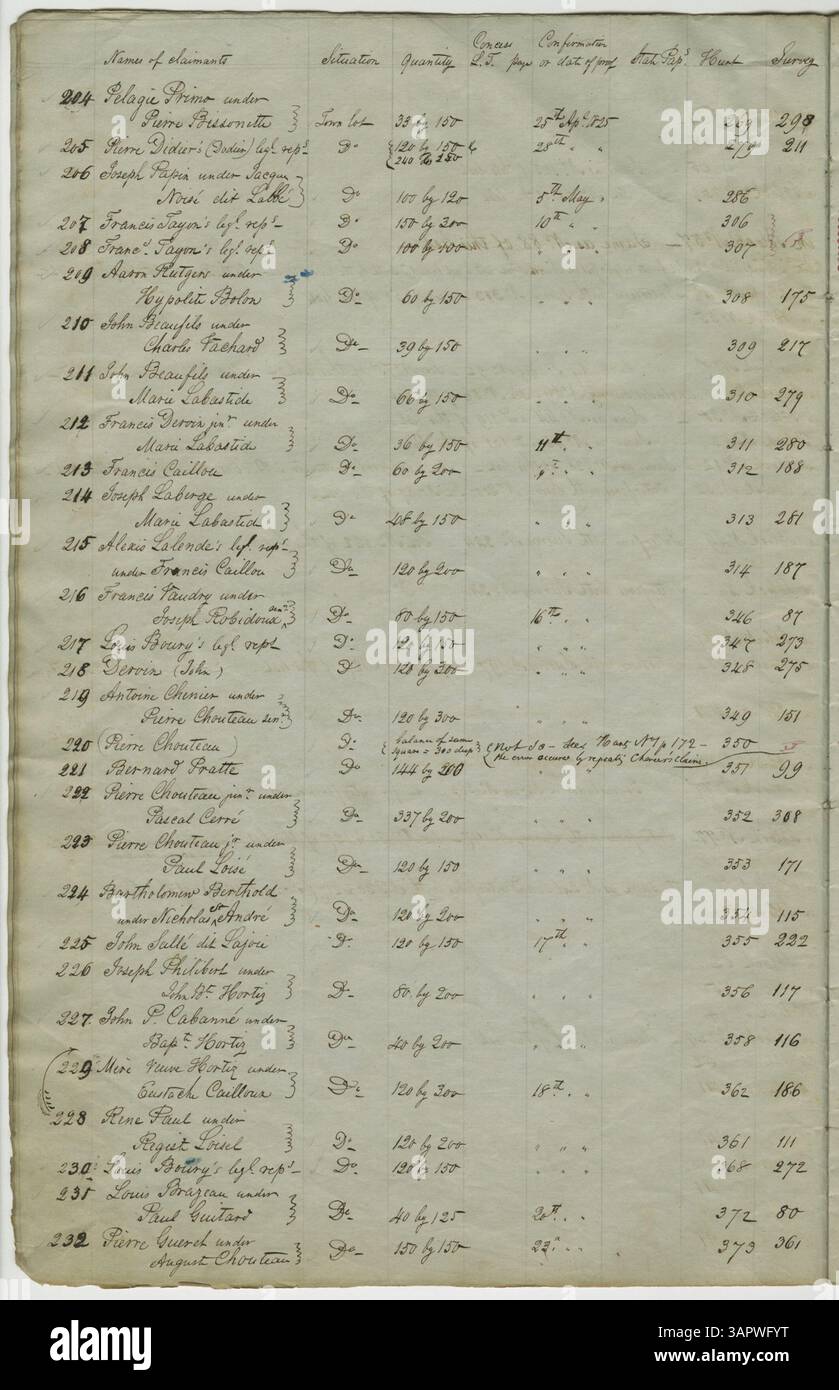 Names of claimants Situation Quantity Concess L.T. page Confirmation or date of proof State Paps Hunt Survey
204 Pelagie Primo under
Pierre Bissonette Town lot 33 by 150 25th Apl. 1825 269 298
205 Pierre Didier's (Dodier) legl. reps Do 120 by 150 & 28th " " 279 211
240 by 250
206 Joseph Papin under Jacque
Noisé dit Labbé Do 100 by 120 5th May " 286
207 Francis Tayon's legl reps Do 150 by 300 10th " " 306
208 Francs. Tayon's legl reps Do 100 by 400 " " " 307
209 Aaron Rutgers under
Hypolite Bolon Do 60 by 150 " " " 308 175
210 John Beaufils under
Charles Vachard Do 39 by 150 " " " 309 217
211 John Beaufils under
Marie Labastide Do 66 by 150 " " " 310 279
212 Francis Deroin junr under
Marie Labastide Do 36 by 150 11th " " 311 280
213 Francis Caillou Do 60 by 200 " " 312 188
214 Joseph Laberge under
Marie Labastid Do 48 by 150 " " 313 281
215 Alexis Lalende's legl. reps
under Francis Caillou Do 120 by 200 " " " 314 187
216 Francis Vaudry under
Joseph Robidoux senr Do 80 by 150 16th " " 346 87
217 Louis Boury's legl reps Do 120 by 150 " " " 347 273
218 Deroin (John) Do 120 by 300 " " " 348 275
219 Antoine Chenier under
Pierre Chouteau senr Do 120 by 300 " " " 349 151
220 (Pierre Chouteau) Do balance of same square = 300 deep Not so - see Hunt No 1 p 172 - 350
the error occurs by repeatg Chenier's claim.
221 Bernard Pratte Do 144 by 200 " " 351 99
222 Pierre Chouteau junr under
Pascal Cerré Do 337 by 200 " " " 352 308
223 Pierre Chouteau jr under
Paul Loisé Do 120 by 150 " " " 353 171
224 Bartholomew Berthold
under Nicholas St André Do 120 by 200 " " " 354 115
225 John Sallé dit Lajoie Do 120 by 150 17th " " 355 222
226 Joseph Philibert under
John Bt. Hortiz Do 80 by 200 " " " 356 117
227 John P. Cabanné under
Bapt. Hortiz Do 40 by 200 " " " 358 116
229 Meré veuve Hortiz under
Eustache Cailloux Do 120 by 300 18th " " 362 186
228 Rene Paul under
Regist Loisel Do 120 by 200 " " " 361 111
230 Louis Boury's legl reps Do 120 by 150 " " " 368 272
231 Louis Brazeau under
Paul Guitard Do 40 by 125 20th " " 372 80
232 Pierre Gueret under
August Chouteau Do 150 by 150 23d " " 373 361
alamy
Image ID: 2APWFYT
www.alamy.com